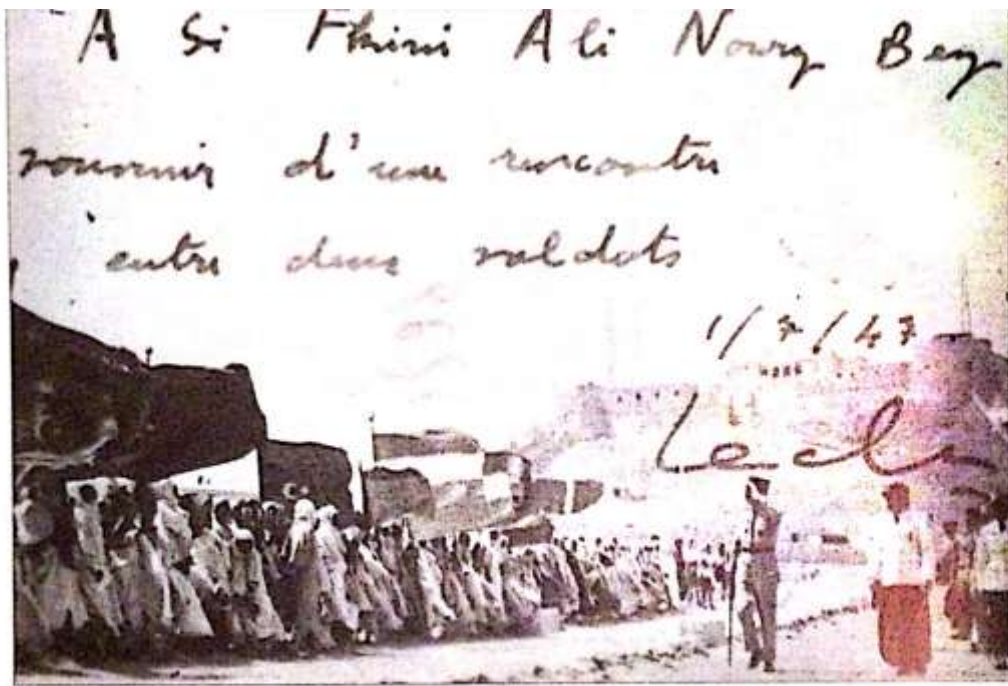 A Si Fkini Ali Noury Bey
souvenir d'une rencontre
entre deux soldats
1/7/47
Lecle